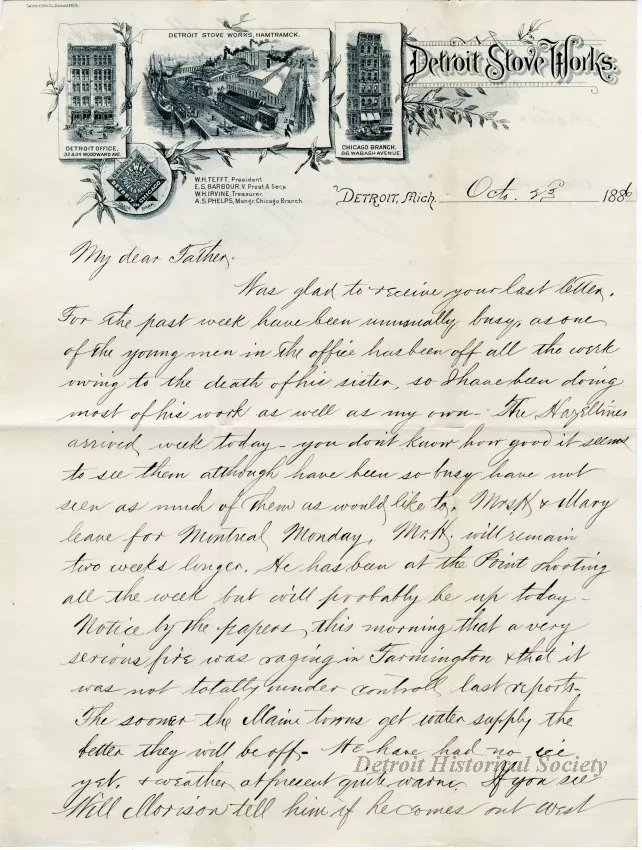 Calvert Lith. Co. Detroit, Mich.
DETROIT STOVE WORKS, HAMTRAMCK.
Detroit Stove Works.
DETROIT OFFICE,
32 & 34 WOODWARD AVE.
CHICAGO BRANCH,
86 WABASH AVENUE.
W.H. TEFFT, President.
E.S. BARBOUR, V. Prest & Secy.
W.H. IRVINE, Treasurer.
A.S. PHELPS, Mangr. Chicago Branch.
Detroit, Mich. Oct. 23d 1886
My dear Father.
Was glad to receive your last letter.
For the past week have been unusually busy, as one
of the young men in the office has been off all the week
owing to the death of his sister, so I have been doing
most of his work as well as my own - The Hazeltines
arrived week today - you don't know how good it seems
to see them although have been so busy have not
seen as much of them as would like to. Mrs H & Mary
leave for Montreal Monday. Mr. H. will remain
two weeks longer. He has been at the Point shooting
all the week but will probably be up today -
Notice by the papers this morning that a very
serious fire was raging in Farmington & that it
was not totally under controll last reports.
The sooner the Maine towns get water supply the
better they will be off - We have had no ice
yet, & weather at present quite warm. If you see
Will Morison tell him if he comes out West
Detroit Historical Society